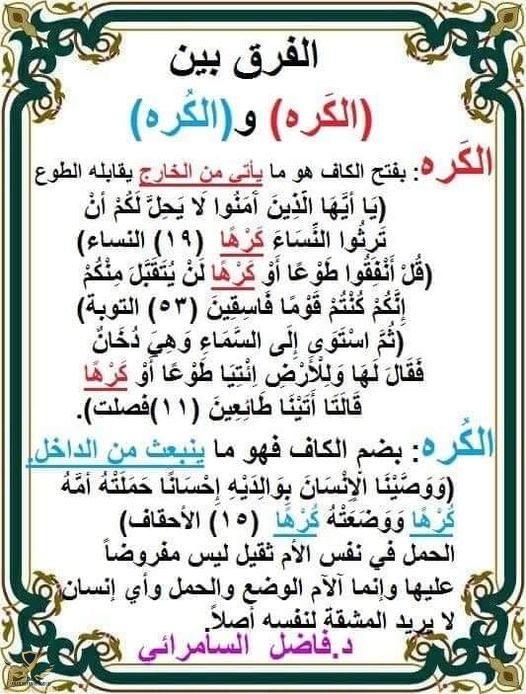 الفرق بين
(الكَره) و(الكُره)
الكَره: بفتح الكاف هو ما يأتي من الخارج يقابله الطوع
(يَا أَيُّهَا الَّذِينَ آَمَنُوا لَا يَحِلُّ لَكُمْ أَنْ
تَرِثُوا النِّسَاءَ كَرْهًا (١٩) النساء)
(قُلْ أَنْفِقُوا طَوْعًا أَوْ كَرْهًا لَنْ يُتَقَبَّلَ مِنْكُمْ
إِنَّكُمْ كُنْتُمْ قَوْمًا فَاسِقِينَ (٥٣) التوبة)
(ثُمَّ اسْتَوَى إِلَى السَّمَاءِ وَهِيَ دُخَانٌ
فَقَالَ لَهَا وَلِلْأَرْضِ اِئْتِيَا طَوْعًا أَوْ كَرْهًا
قَالَتَا أَتَيْنَا طَائِعِينَ (١١)فصلت).
الكُره: بضم الكاف فهو ما ينبعث من الداخل.
(وَوَصَّيْنَا الْإِنْسَانَ بِوَالِدَيْهِ إِحْسَانًا حَمَلَتْهُ أُمُّهُ
كُرْهًا وَوَضَعَتْهُ كُرْهًا (١٥) الأحقاف)
الحمل في نفس الأم ثقيل ليس مفروضاً
عليها وإنما آلام الوضع والحمل وأي إنسان
لا يريد المشقة لنفسه أصلاً.
د.فاضل السامرائي